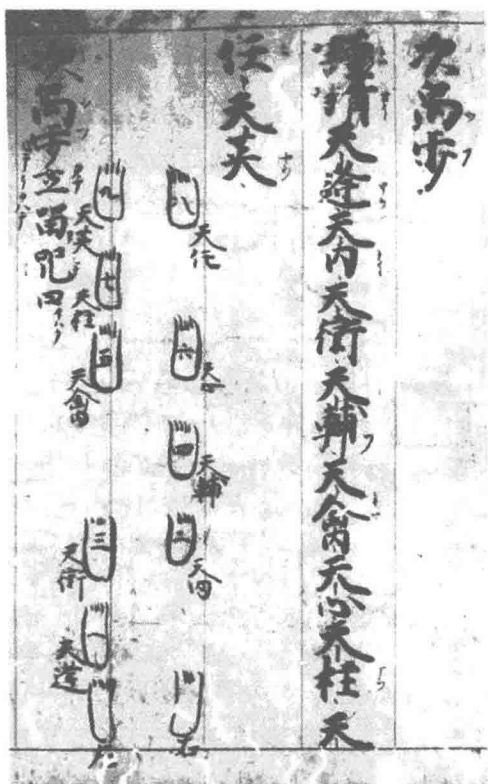 次禹歩
謹請天逢天内天衝天輔天禽天心天柱天
任天英
八 天任
六 天心
四 天輔
二 天内
右
九 天英
七 天柱
五 天禽
三 天衝
一 天逢
左
次禹歩立留呪曰